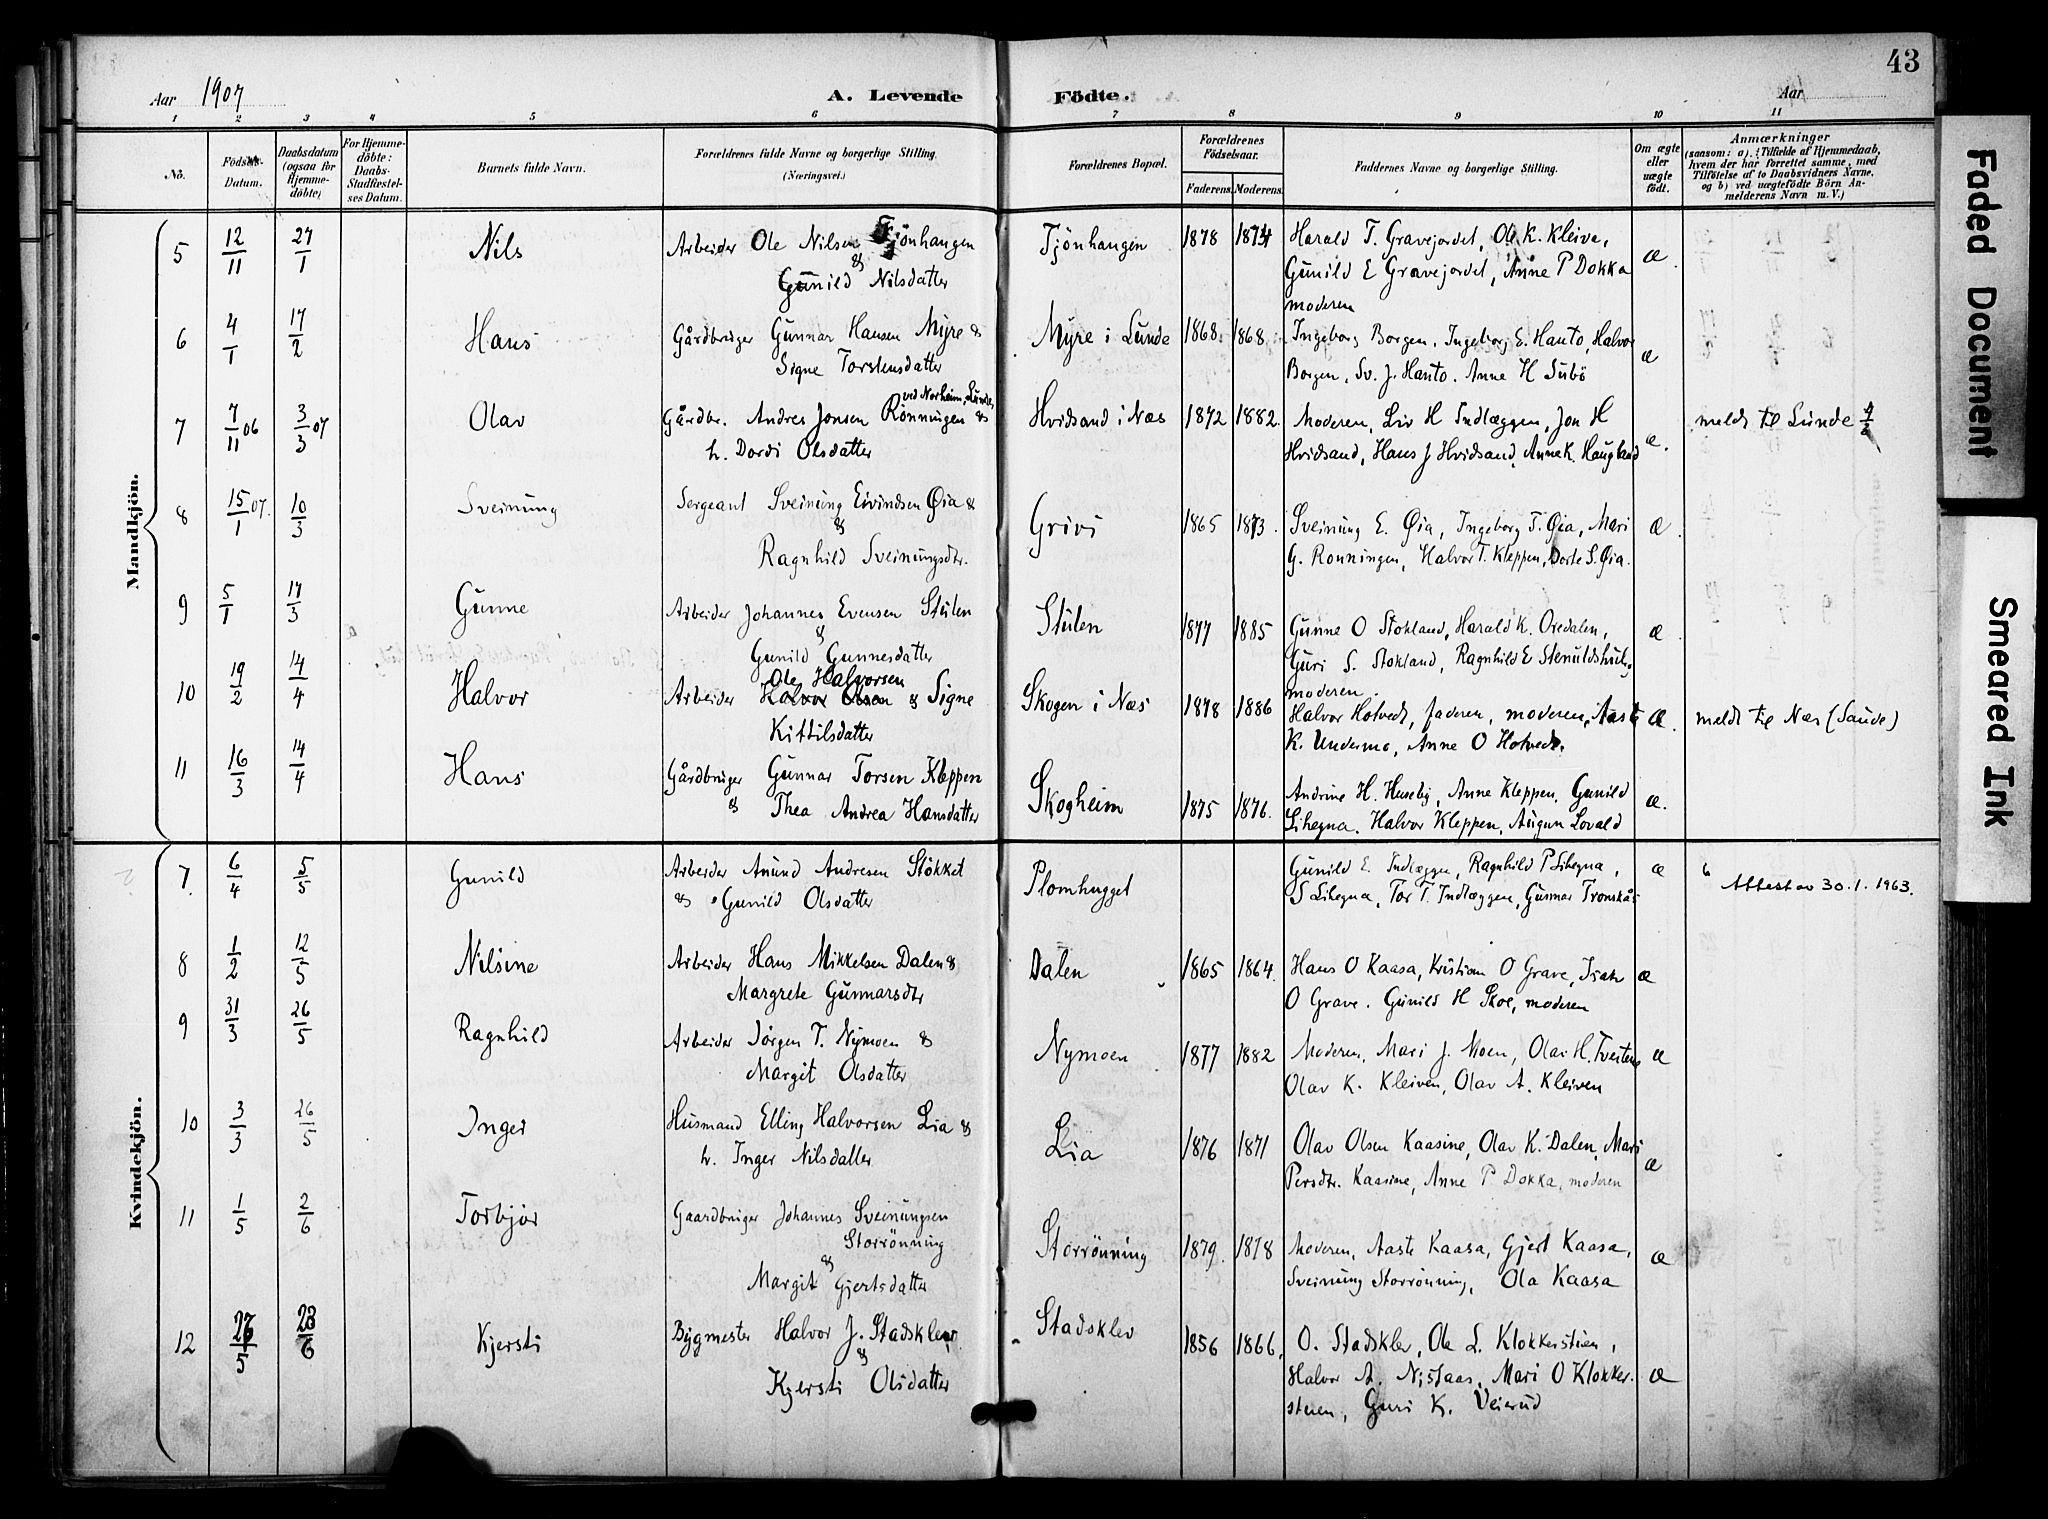 43
Aar 1907 A. Levende Födte. Aar
1 2 3 4 5 6 7 8 9 10 11
No.
Födsels-Datum.
Daabsdatum (ogsaa for Hjemme-døbte)
For Hjemme-døbte: Daabs-Stadfæstel-ses Datum.
Barnets fulde Navn.
Forældrenes fulde Navne og borgerlige Stilling.
(Næringsvei.)
Forældrenes Bopæl.
Forældrenes Fødselsaar.
Faderens. Moderens.
Faddernes Navne og borgerlige Stilling.
Om ægte eller uægte født.
Anmærkninger
(saasom: a) i Tilfælde af Hjemmedaab,
hvem der har forrettet samme, med
Tilföielse af to Daabsvidners Navne,
og b) ved uægtefödte Börn An-
melderens Navn m. V.)
Mandkjön.
5 12/11 27/1 Nils Arbeider Ole Nilsen Tjönhangen Tjönhangen 1878 1874 Harald T. Gravejordet, Ole K. Kleiva, æ.
& Gunild Nilsdatter Gunild E Gravejordet, Anne P Dokka
moderen
6 4/1 17/2 Hans Gårdbruger Gunnar Hansen Myre & Myre i Lunde 1868 1868 Ingeborg Borgen, Ingeborg E. Hanto, Halvor æ
Signe Torstensdatter Borgen, Sv. J. Hanto. Anne H Subö
ved Norheim, Lunde,
7 7/11 06 3/3 07 Olav Gårdbr. Andres Jonsen Rönningen & Hvidsand i Næs 1872 1882 Moderen, Liv H Indlæggen, Jon H æ. meldt til Lunde
h. Dordi Olsdatter Hvidsand, Hans J Hvidsand, Anne K. Haugland
8 15/1 07 10/3 Sveinung Sergeant Sveinung Eivindsen Øia & Grivi 1865 1873 Sveinung E. Øia, Ingeborg T. Øia, Mari æ
& Ragnhild Sveinungsdtr. G. Ronningen, Halvor T. Kleppen, Dorte S. Øia.
9 5/1 17/3 Gunne Arbeider Johannes Evensen Stulen Stulen 1877 1885 Gunne O Stokland, Harald K. Oredalen, æ
& Gunild Gunnesdatter Guri S. Stokland, Ragnhild E
moderen.
Ole Halvorsen
10 19/2 14/4 Halvor Arbeider Halvor Olsen & Signe Skogen i Næs 1878 1886 Halvor Hotvedt, faderen, moderen, Aaste æ. meldt til Næs (Saude)
Kittilsdatter K. Undermo, Anne O Hotvedt.
11 16/3 14/4 Hans Gårdbruger Gunnar Torsen Kleppen Skogheim 1875 1876. Andrine H. Huseby, Anne Kleppen, Gunild æ.
& Thea Andrea Hansdatter Lihegna. Halvor Kleppen, Augun Lovald
Kvindekjön.
7. 6/4 5/5 Gunild Arbeider Amund Andresen Stökket Plomhugget Gunild E. Indlæggen, Ragnhild P Lihegna, æ Attest av 30.1.1963.
& Gunild Olsdatter S Lihegna, Tor T. Indlæggen, Gunnar Tronskås
8 1/2 12/5 Nilsine Arbeider Hans Mikkelsen Dalen & Dalen 1865 1864. Hans O Kaasa, Kristian O Grave, Isak æ
Margrete Gunnarsdtr O Grave. Gunild H Skoe, moderen
9 31/3 26/5 Ragnhild Arbeider Jörgen T. Nymoen & Nymoen 1877 1882 Moderen, Mari J. Moen, Olav H. Tveiten æ
Margit Olsdatter Olav K. Kleiven, Olav A. Kleiven
10 3/3 26/5 Inger Husmand Elling Halvorsen Lia & Lia 1876 1871 Olav Olsen Kaasine, Olav K. Dalen, Mari æ
h. Inger Nilsdatter Persdtr. Kaasine, Anne P Dokka, moderen
11 1/5 2/6 Torbjör Gaardbruger Johannes Sveinungsen Storrönning 1879. 1878 Moderen, Aaste Kaasa, Gjert Kaasa, æ
Storrönning Sveinung Storrönning, Ola Kaasa
& Margit Gjertsdatter
12 27/5 23/6 Kjersti Bygmester Halvor J. Stadsklev, Stadsklev 1856 1866, O. Stadsklev, Ole L. Klokkerstuen, æ
& Kjersti Olsdatter Halvor A. Nistaas, Mari O Klokker-
stuen, Guri K. Veierud
Faded Document
Smeared Ink